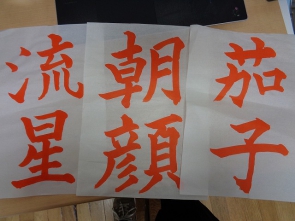 茄子
朝顔
流星